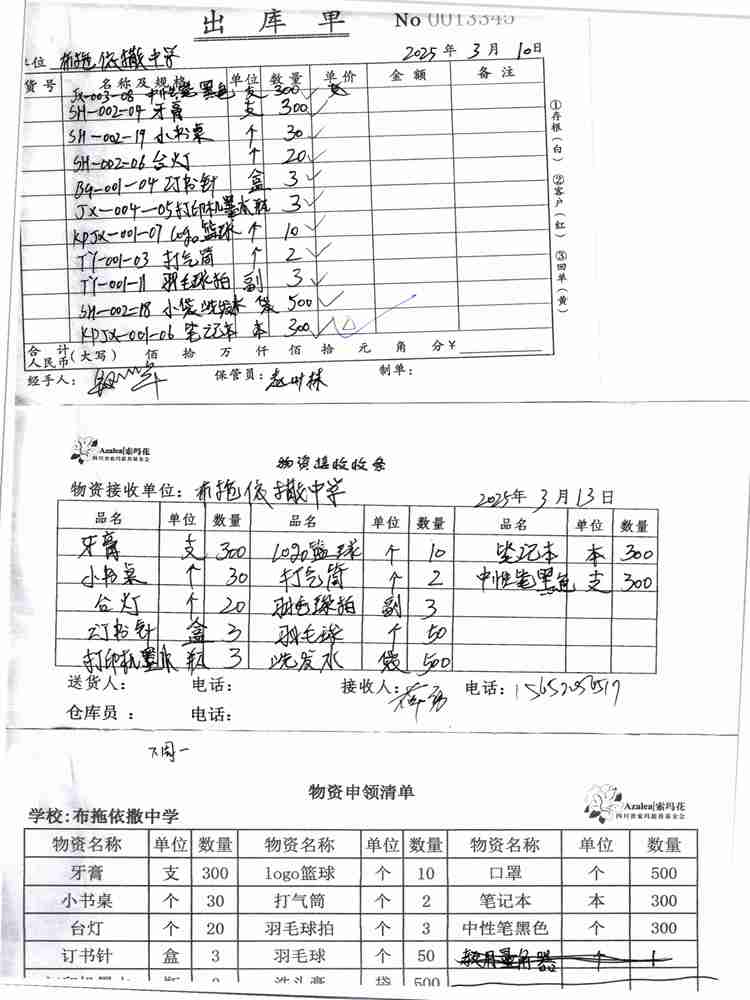 出库单 No 0013345
单位 布拖依撒中学 2025年3月10日
货号 名称及规格 单位 数量 单价 金额 备注
JX-003-08 中性笔黑色 支 300
SH-002-04 牙膏 支 300
SH-002-19 小书桌 个 30
SH-002-06 台灯 个 20
BG-001-04 订书针 盒 3
JX-004-05 打印机墨水 瓶 3
KPJX-001-07 logo篮球 个 10
TY-001-03 打气筒 个 2
TY-001-11 羽毛球拍 副 3
SH-002-18 小袋洗发水 袋 500
KPJX-001-06 笔记本 本 300
合计
人民币(大写) 佰 拾 万 仟 佰 拾 元 角 分¥
经手人: 保管员: 制单:
①存根(白) ②客户(红) ③回单(黄)
Azalea|索玛花
四川省索玛慈善基金会
物资接收收条
物资接收单位: 布拖依撒中学 2025年3月13日
品名 单位 数量 品名 单位 数量 品名 单位 数量
牙膏 支 300 logo篮球 个 10 笔记本 本 300
小书桌 个 30 打气筒 个 2 中性笔黑色 支 300
台灯 个 20 羽毛球拍 副 3
订书针 盒 3 羽毛球 个 50
打印机墨水 瓶 3 洗发水 袋 500
送货人: 电话: 接收人: 电话:
仓库员: 电话:
下周一
Azalea|索玛花
四川省索玛慈善基金会
物资申领清单
学校:布拖依撒中学
物资名称 单位 数量 物资名称 单位 数量 物资名称 单位 数量
牙膏 支 300 logo篮球 个 10 口罩 个 500
小书桌 个 30 打气筒 个 2 笔记本 本 300
台灯 个 20 羽毛球拍 个 3 中性笔黑色 个 300
订书针 盒 3 羽毛球 个 50 教用量角器 个 1
洗头膏 袋 500